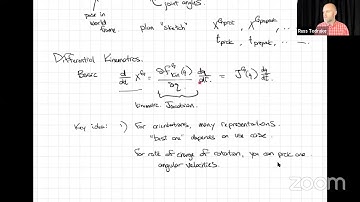 pose in world frame
joint angles.
plan "sketch" X^Gpick X^Gprepick ...
t_pick, t_prepick, ...
Russ Tedrake
Differential Kinematics.
Basic d/dt X^G = ∂f^G_kin(q)/∂q dq/dt = J^G(q) dq/dt
kinematic Jacobian.
Key idea: 1) For orientations, many representations.
"best one" depends on use case.
For rate of change of rotation, you can pick one
angular velocities.
zoom